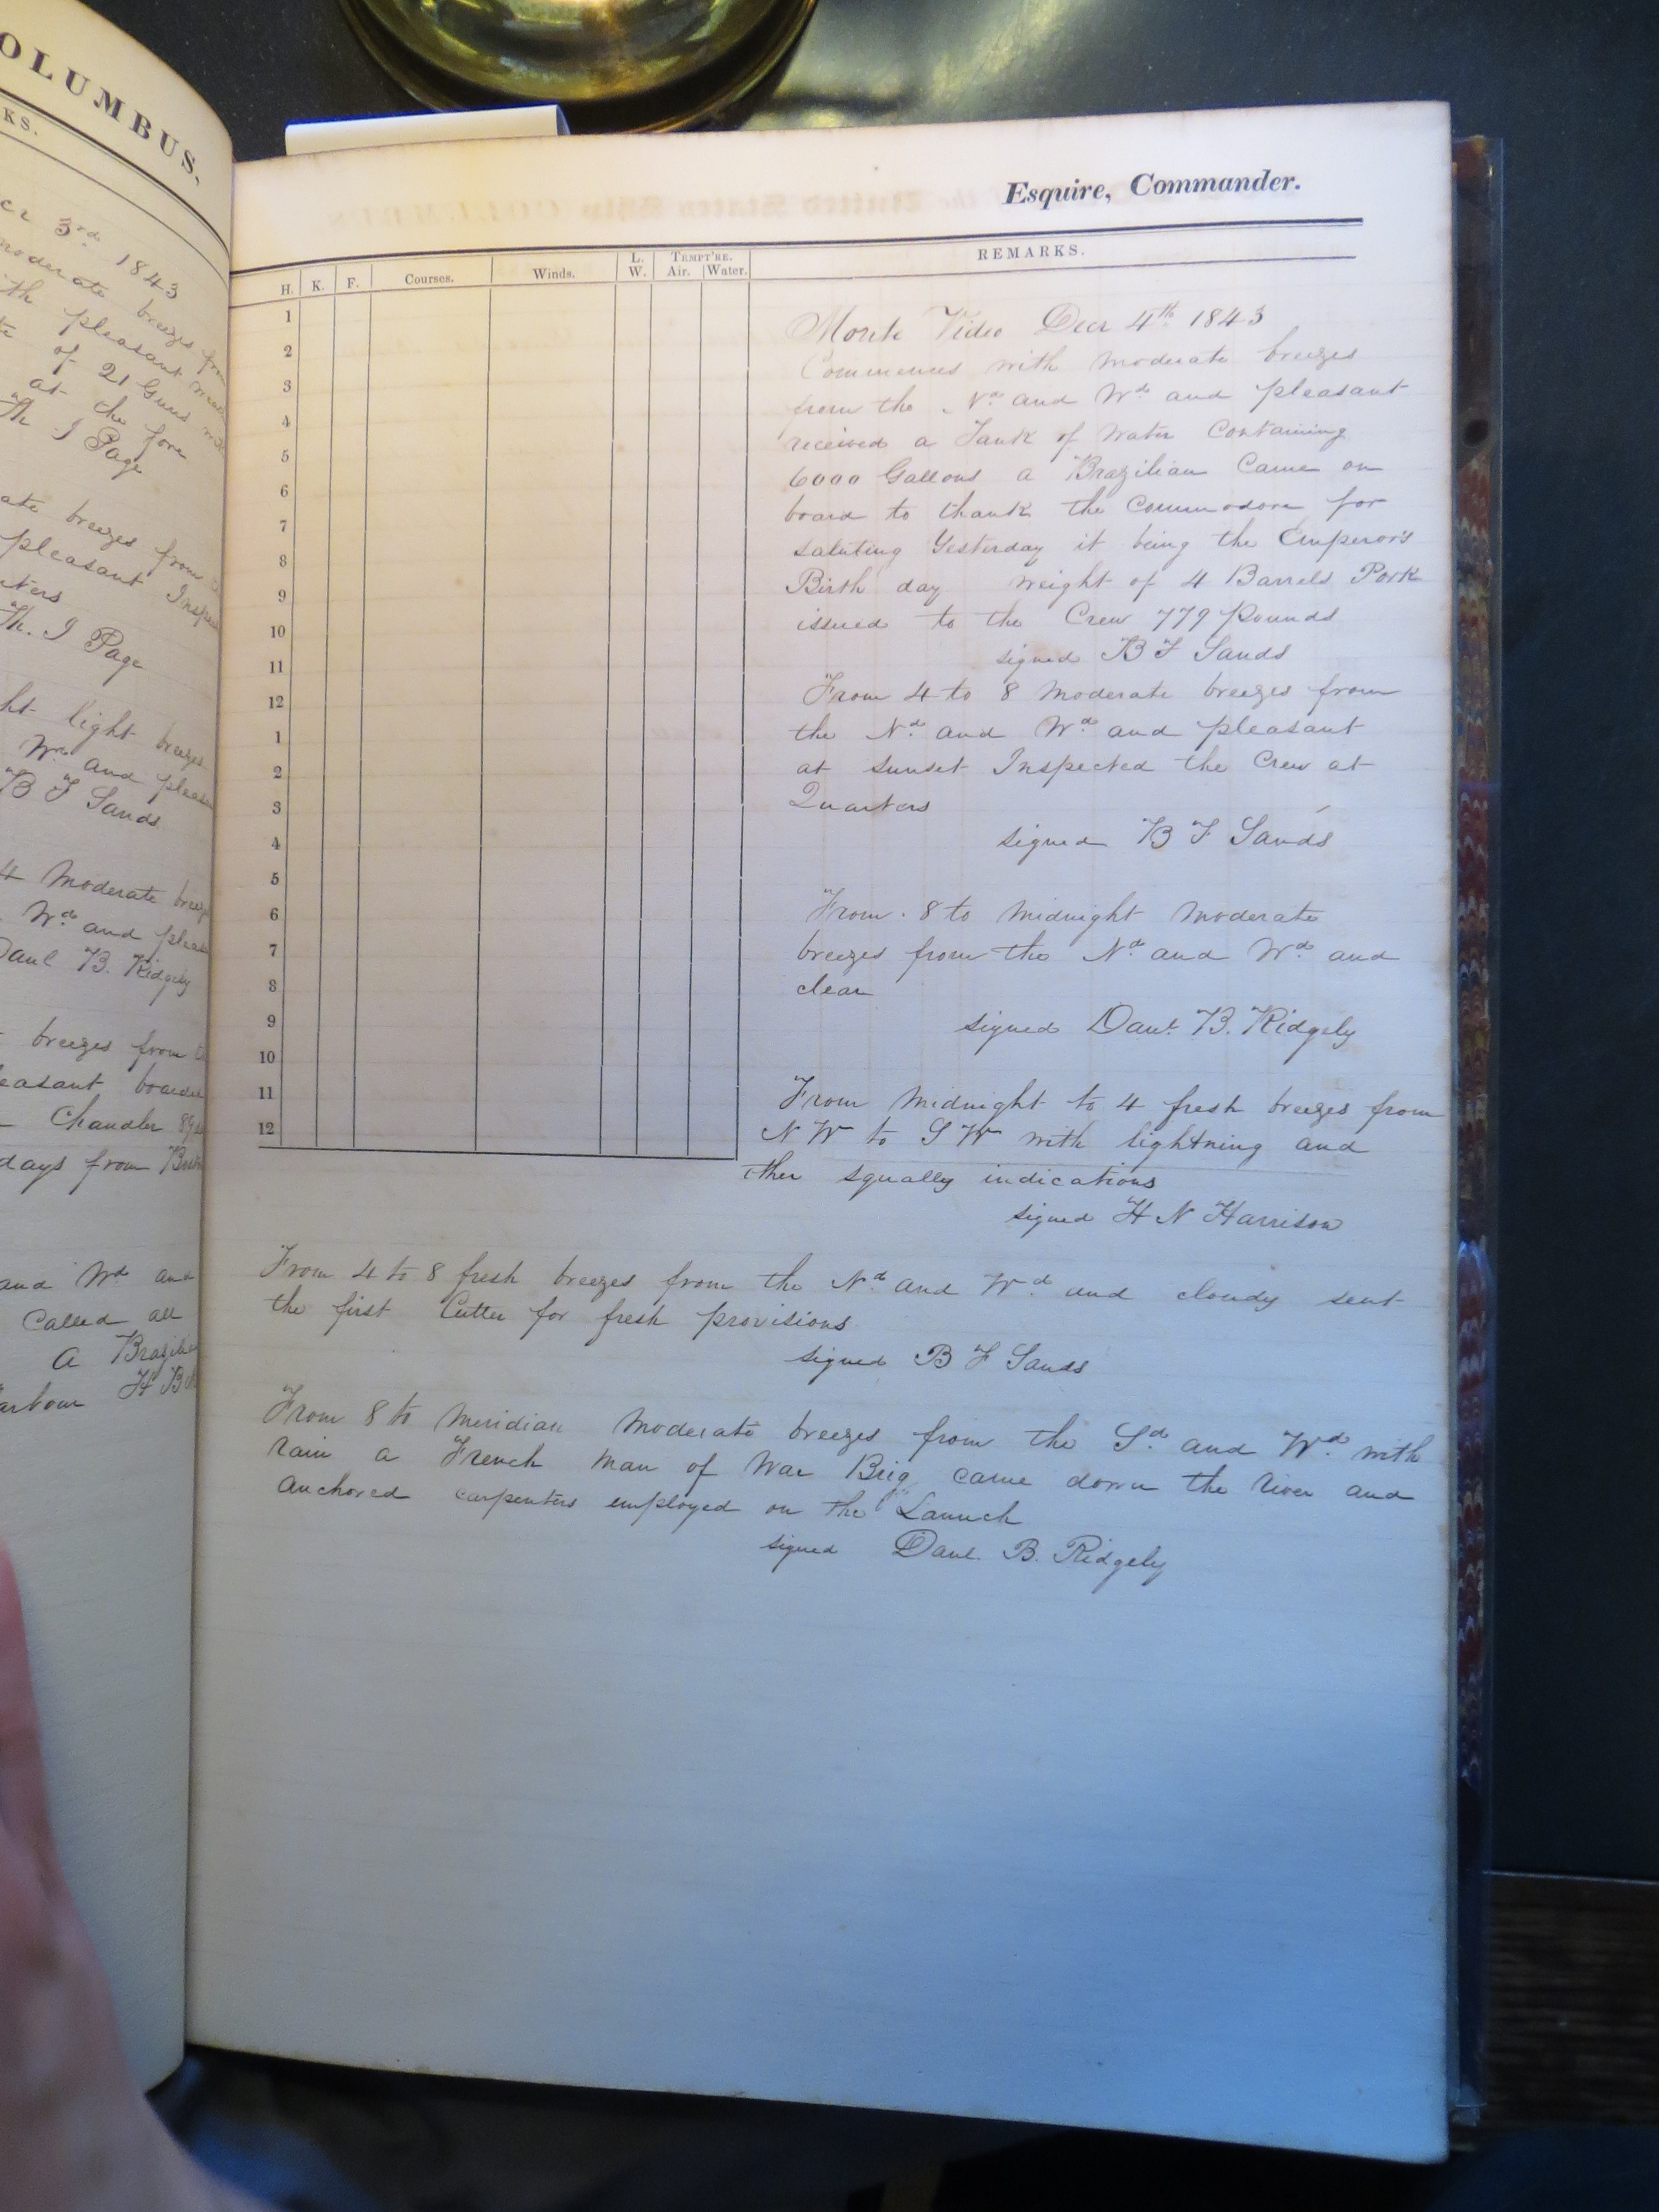 OLUMBUS.
KS.
3rd 1843
moderate breezes from
pleasant
of 21 Guns
at the fore
Th J Page
ate breezes from
pleasant
Th. J Page
light breezes
Wd and
B F Sands
4 Moderate
Wd and
Danl B. Ridgely
breezes from
easant
Chandler
days from
and Wd and
Called all
a
arbour
Esquire, Commander.
H. K. F. Courses. Winds. L. W. TEMPT'RE. Air. Water. REMARKS.
1
2
3
4
5
6
7
8
9
10
11
12
1
2
3
4
5
6
7
8
9
10
11
12
Monte Video Decr 4th 1843
Commences with moderate breezes
from the Nd and Wd and pleasant
received a Tank of Water Containing
6000 Gallons a Brazilian Came on
board to thank the Commodore for
saluting Yesterday it being the Emperor's
Birth day weight of 4 Barrels Pork
issued to the Crew 779 Pounds
signed B F Sands
From 4 to 8 Moderate breezes from
the Nd and Wd and pleasant
at sunset Inspected the Crew at
Quarters
signed B F Sands
From 8 to Midnight Moderate
breezes from the Nd and Wd and
clear
signed Danl B. Ridgely
From Midnight to 4 fresh breezes from
N W to S W with lightning and
other squally indications
signed H N Harrison
From 4 to 8 fresh breezes from the Nd and Wd and cloudy sent
the first Cutter for fresh provisions
signed B F Sands
From 8 to Meridian Moderate breezes from the Sd and Wd with
rain a French Man of War Brig came down the river and
anchored carpenters employed on the Launch
signed Danl. B. Ridgely